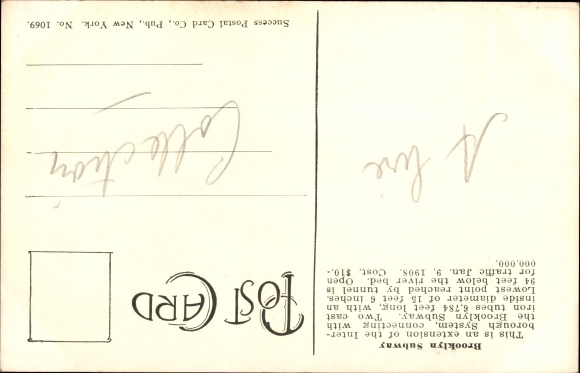 Brooklyn Subway
This is an extension of the Inter-
borough System, connecting with
the Brooklyn Subway. Two cast
iron tubes 6,784 feet long, with an
inside diameter of 15 feet 6 inches.
Lowest point reached by tunnel is
94 feet below the river bed. Open
for traffic Jan. 9, 1908. Cost, $10,-
000,000.
POST CARD
Collection
Success Postal Card Co., Pub., New York. No. 1069.